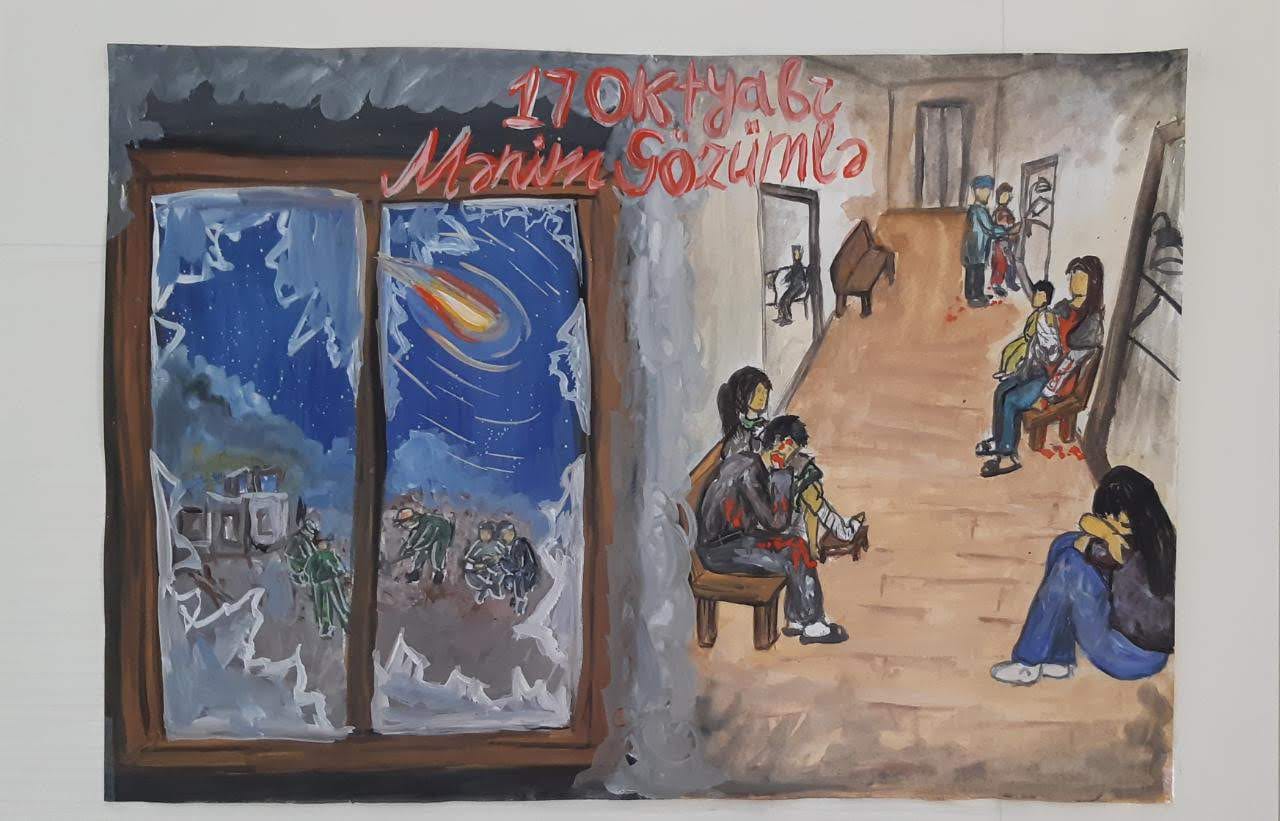 17 Oktyabr
Mənim Gözümlə